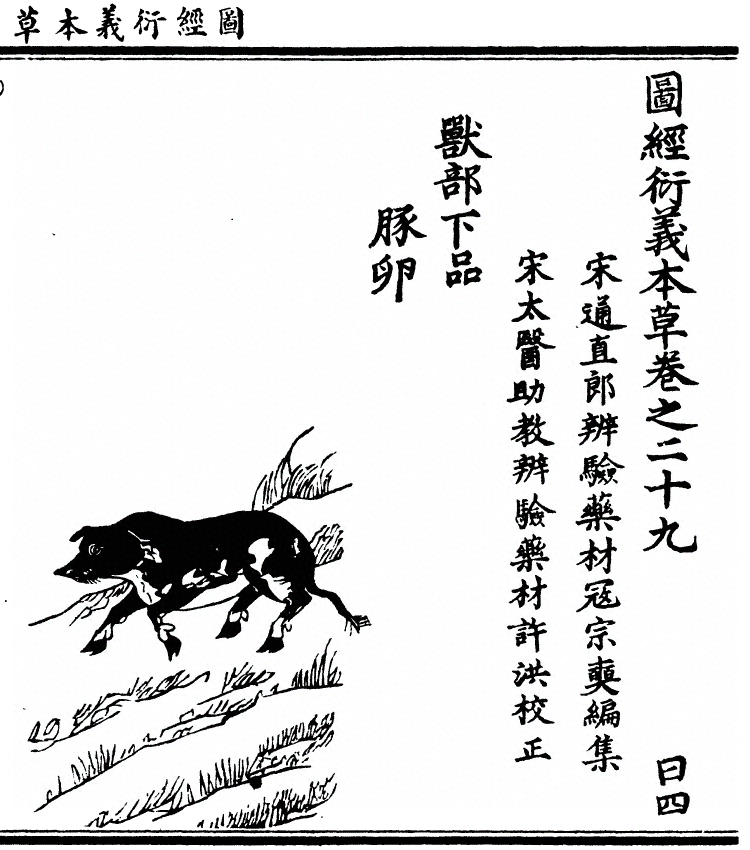 圖經衍義本草
圖經衍義本草卷之二十九
曰四
宋通直郎辨驗藥材寇宗奭編集
宋太醫助教辨驗藥材許洪校正
獸部下品
豚卵